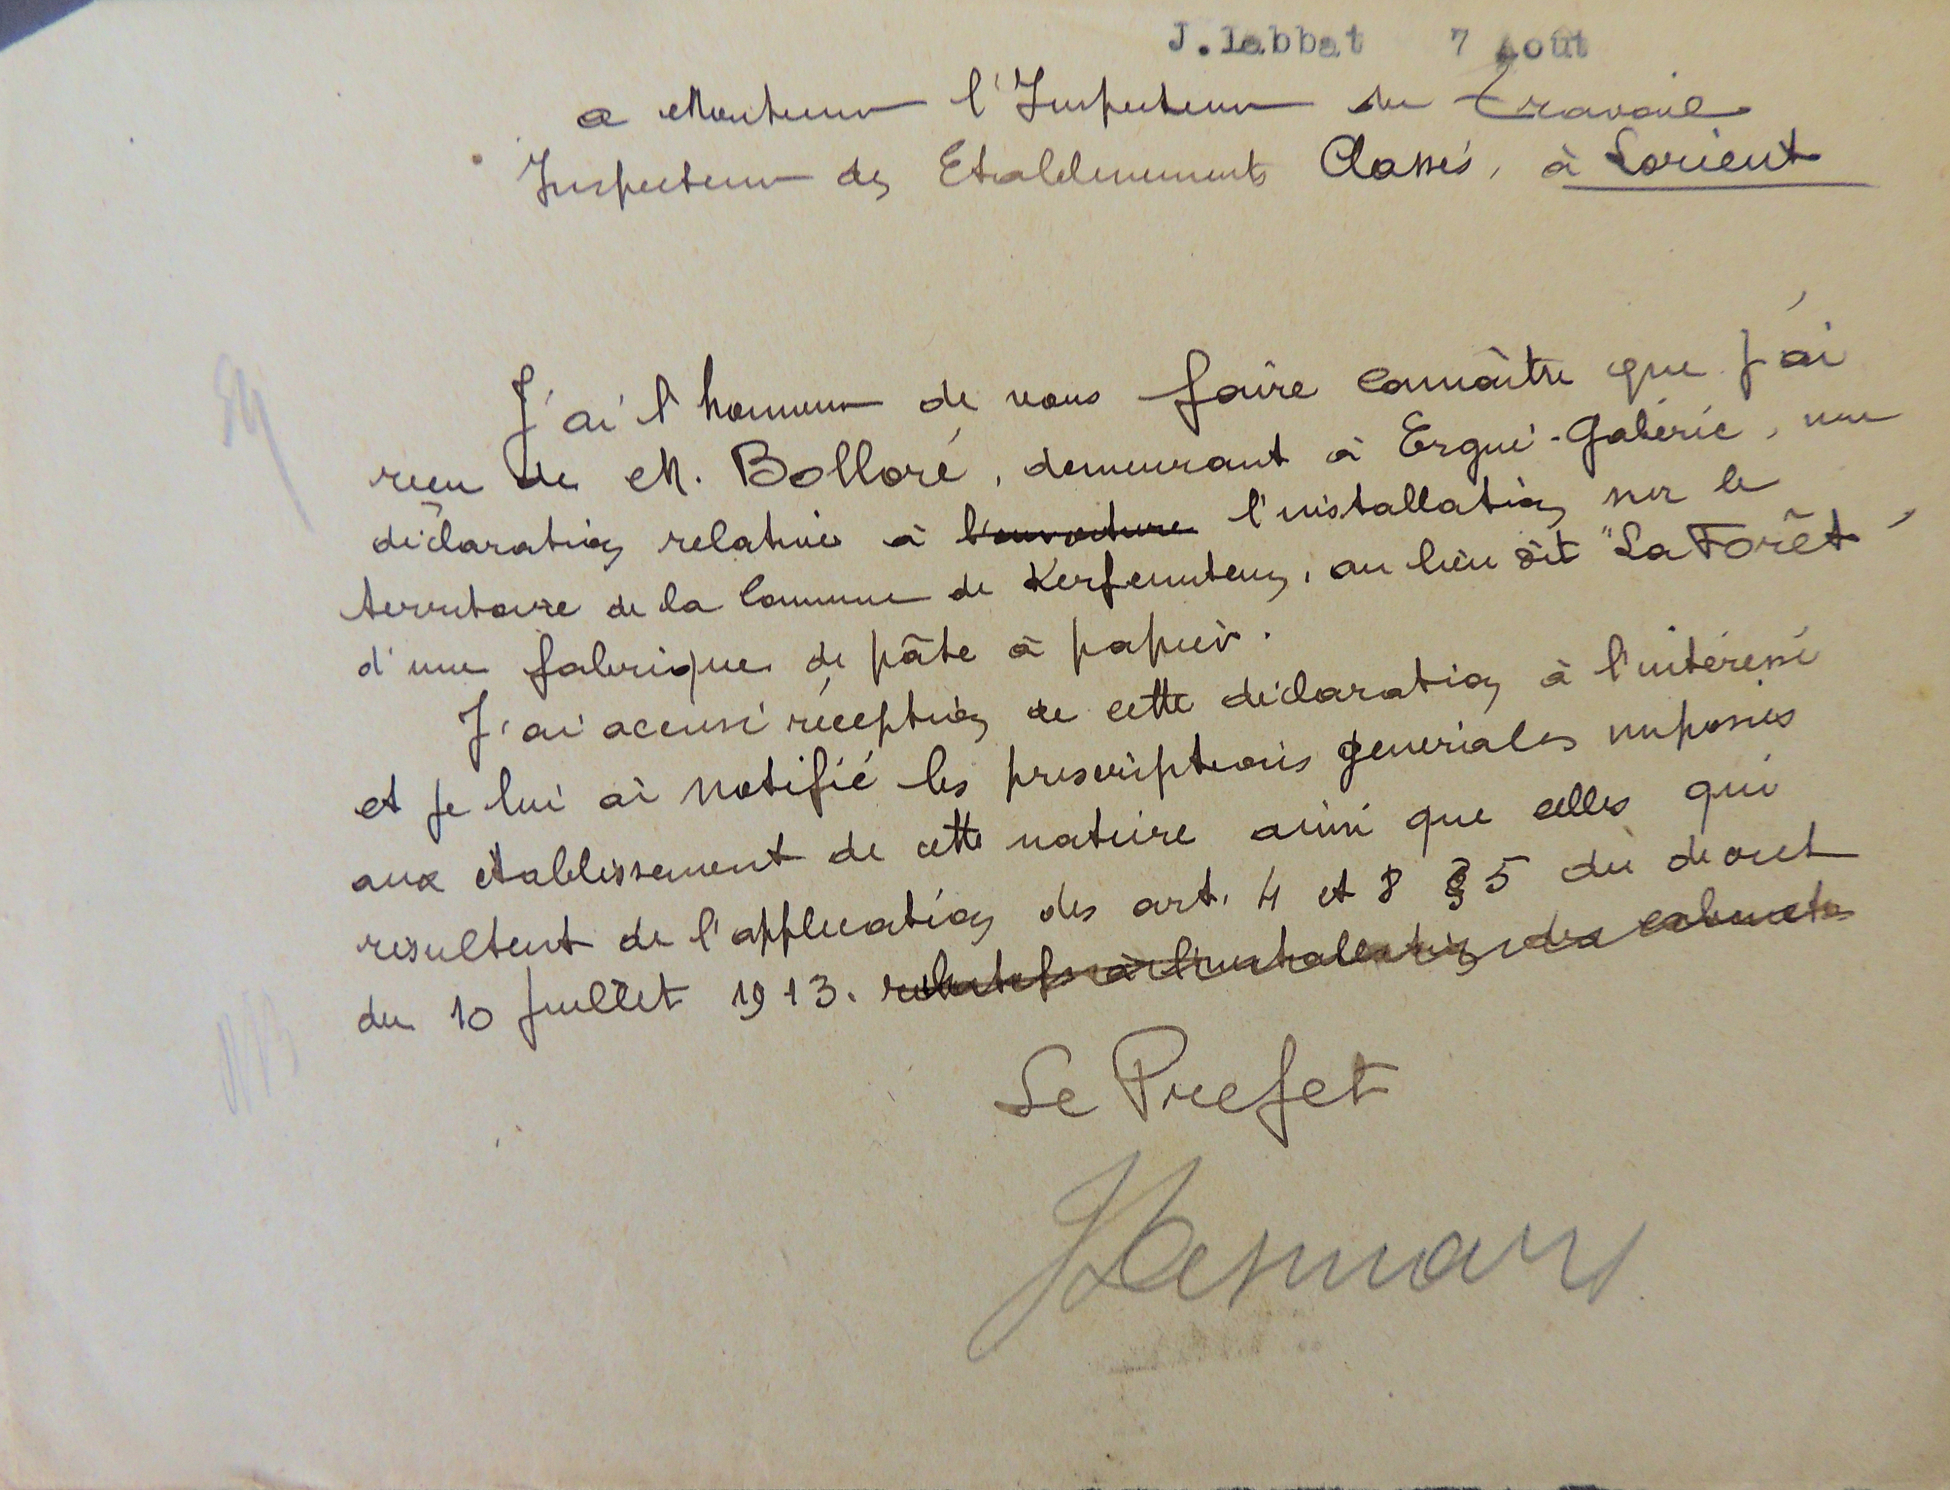 J. Labbat 7 Août
a Monsieur l'Inspecteur du Travail
Inspecteur des Etablissements Classés, à Lorient
J'ai l'honneur de vous faire connaître que j'ai
reçu de M. Bolloré, demeurant à Ergué-Gabéric, une
déclaration relative à l'ouverture l'installation sur le
territoire de la Commune de Kerfeunteun, au lieu dit "La Forêt"
d'une fabrique de pâte à papier.
J'ai accusé réception de cette déclaration à l'intéressé
et je lui ai notifié les prescriptions générales imposées
aux établissement de cette nature ainsi que celles qui
résultent de l'application des art. 4 et 8 § 5 du décret
du 10 Juillet 1913. relatifs à l'installation des cabinets
Le Prefet